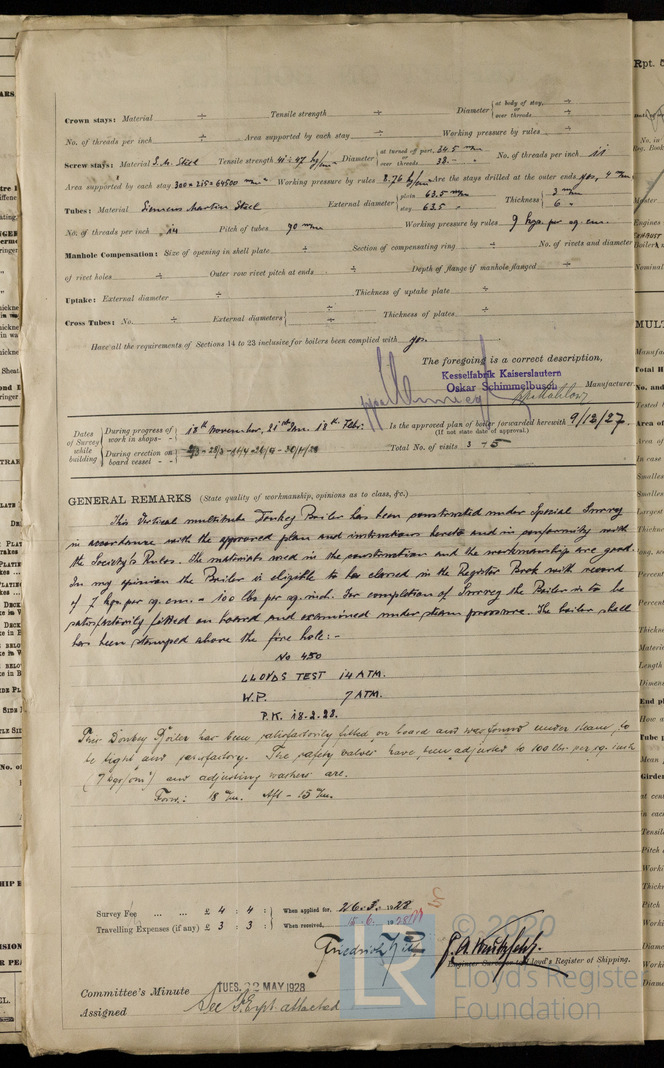 Crown stays: Material ÷ Tensile strength ÷ Diameter { at body of stay, ÷ or over threads ÷
No. of threads per inch ÷ Area supported by each stay ÷ Working pressure by rules ÷
Screw stays: Material S.M. Steel Tensile strength 41÷47 kg/mm² Diameter { at turned off part, 34.5 mm or over threads 38.— " No. of threads per inch 11
Area supported by each stay 300 × 215 = 64500 mm² Working pressure by rules 8.76 kg/cm² Are the stays drilled at the outer ends yes, 4 mm
Tubes: Material Siemens Martin Steel External diameter { plain 63.5 mm stay 63.5 " Thickness { 3 mm 6 "
No. of threads per inch 14 Pitch of tubes 90 mm Working pressure by rules 9 kgs. per sq. cm.
Manhole Compensation: Size of opening in shell plate ÷ Section of compensating ring ÷ No. of rivets and diameter
of rivet holes ÷ Outer row rivet pitch at ends ÷ Depth of flange if manhole flanged ÷
Uptake: External diameter ÷ Thickness of uptake plate ÷
Cross Tubes: No. ÷ External diameters { ÷ ÷ Thickness of plates ÷
Have all the requirements of Sections 14 to 23 inclusive for boilers been complied with yes.
The foregoing is a correct description,
Kesselfabrik Kaiserslautern
Oskar Schimmelbusch Manufacturer.
Dates of Survey while building
During progress of work in shops - - 18th November, 21st Jan. 18th Febr. Is the approved plan of boiler forwarded herewith 9/12/27.
(If not state date of approval.)
During erection on board vessel - - Total No. of visits 3 + 5
GENERAL REMARKS (State quality of workmanship, opinions as to class, &c.)
This Vertical multitube Donkey Boiler has been constructed under Special Survey
in accordance with the approved plan and instructions hereto and in conformity with
the Society's Rules. The materials used in the construction and the workmanship are good.
In my opinion the Boiler is eligible to be classed in the Register Book with record
of 7 kgs. per sq. cm. = 100 lbs. per sq. inch. For completion of Survey the Boiler is to be
satisfactorily fitted on board and examined under steam pressure. The boiler shell
has been stamped above the fire hole:-
No 450
LLOYDS TEST 14 ATM.
W.P. 7 ATM.
P.K. 18.2.28.
This Donkey Boiler has been satisfactorily fitted on board and was found under steam to
be tight and satisfactory. The safety valves have been adjusted to 100 lbs. per sq. inch
(7 kgs/cm²) and adjusting washers are.
Forw: 18 mm. Aft - 15 mm.
Survey Fee ... ... £ 4 : 4 : } When applied for, 26.3. 1928
Travelling Expenses (if any) £ 3 : 3 : } When received, 15.6. 1928
Engineer Surveyor to Lloyd's Register of Shipping.
Committee's Minute TUES. 22 MAY 1928
Assigned See F.E. rpt. attached
© 2020
LR
Lloyd's Register
Foundation